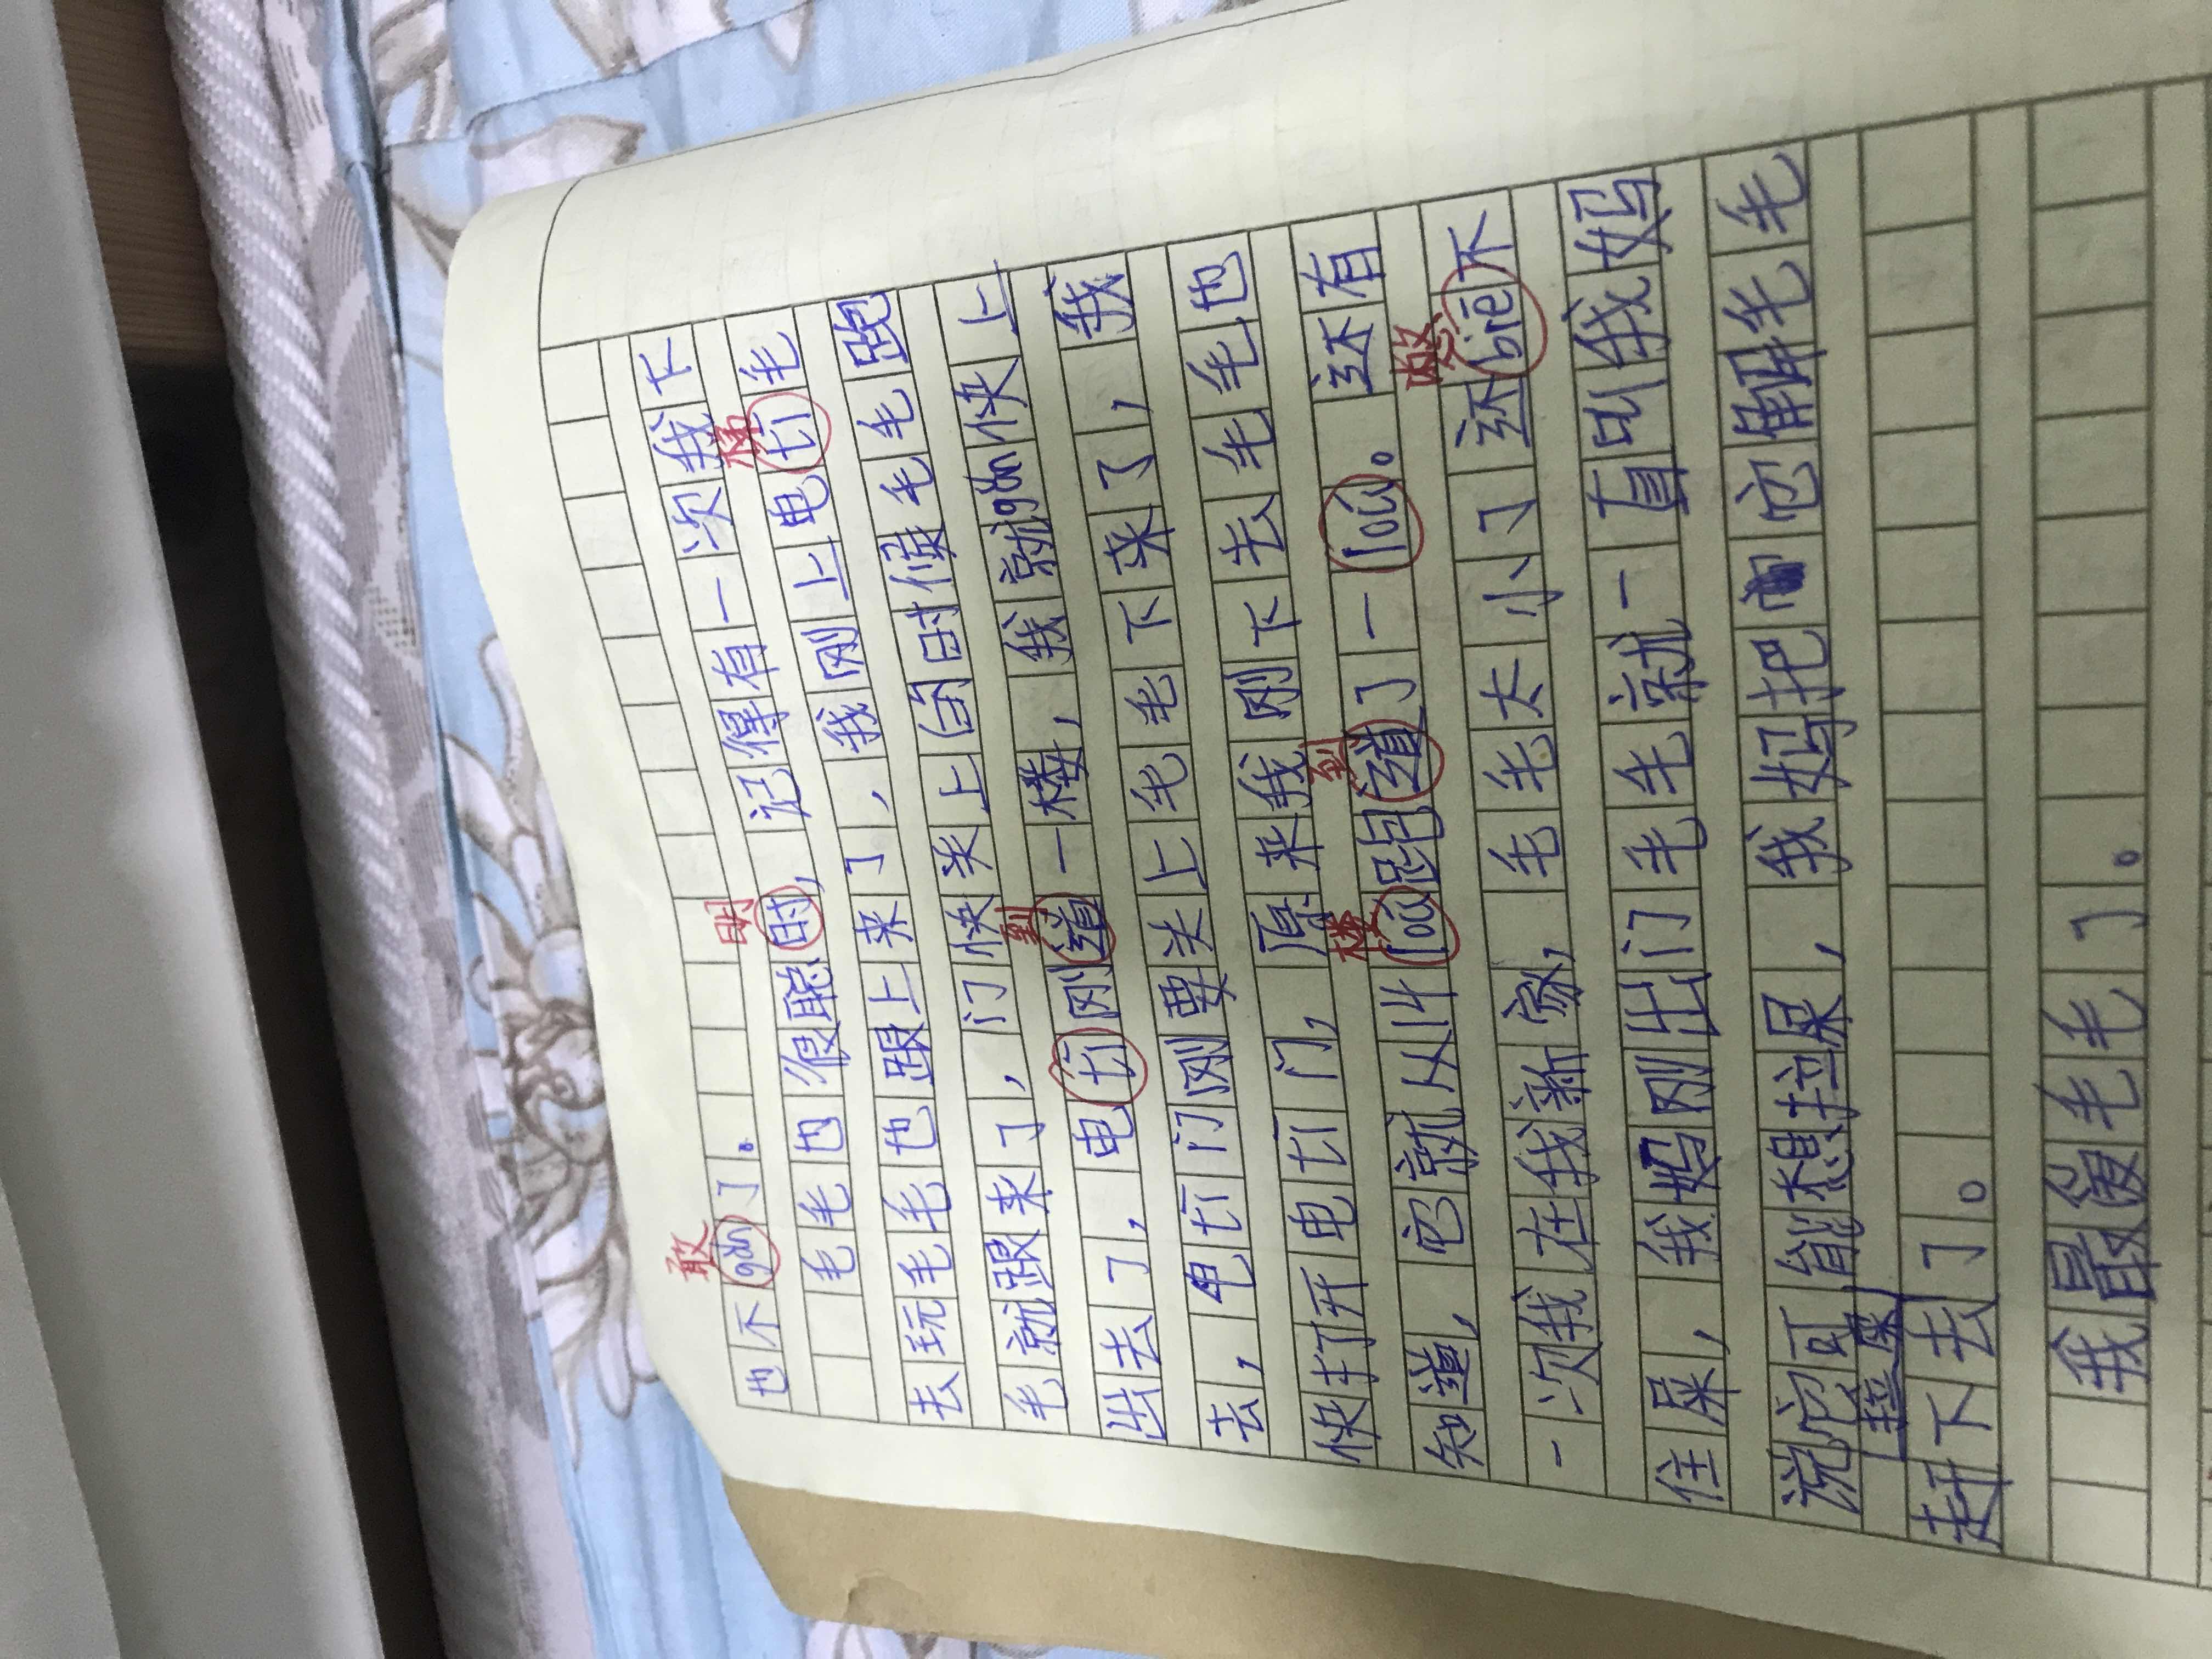 敢
也不gǎn了。
明
毛毛也很聪时，记得有一次我下
梯
去玩毛毛也跟上来了，我刚上电毛
毛就跟来了，门快关上的时候毛毛跑
到
出去了，电刚道一楼，我就gǎn快上
去，电门刚要关上毛毛下来了，我
快打开电门，原来我刚下去毛毛也
楼 到
知道，它就从4loú跑道了一loú。还有
憋
一次我在我新家，毛毛大小了还biē不
住屎，我妈刚出门毛毛就一直叫我妈
说它可能想拉屎，我妈把它解毛毛
拉屎
赶下去了。
我最毛毛了。